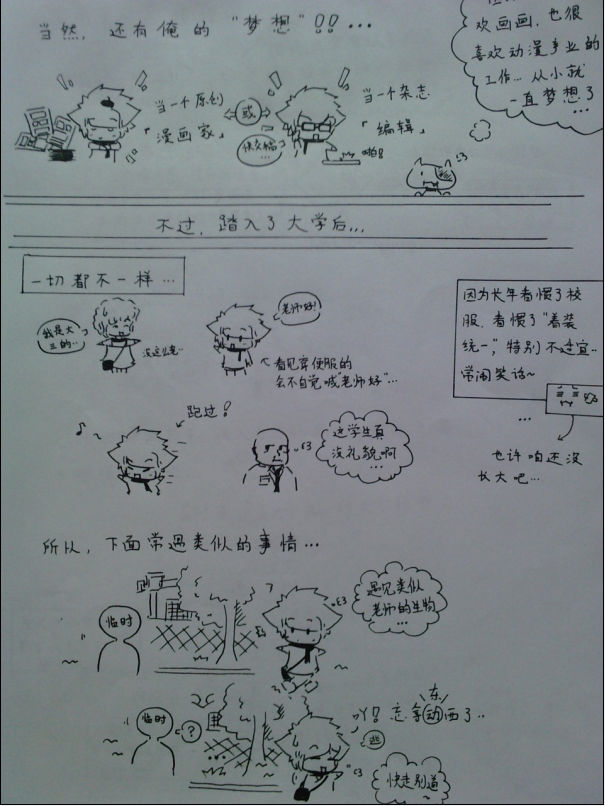 当然, 还有俺的"梦想"!!...
欢画画, 也很
喜欢动漫事业的
工作... 从小就
一直梦想了
...
当一个原创
「漫画家」
或
当一个杂志
「编辑」
快交稿
...
啪!
不过, 踏入了大学后...
一切都不一样...
我是大
三的..
没这么老..
老师好!
看见穿便服的
会不自觉喊"老师好"...
因为长年看惯了校
服, 看惯了"着装
统一", 特别不适宜..
常闹笑话~
...
也许咱还没
长大吧...
跑过!
这学生真
没礼貌啊
...
所以, 下面常遇类似的事情...
临时
遇见类似
老师的生物
...
临时
?
...
吖! 忘拿动西了..
东
逃
快走别道